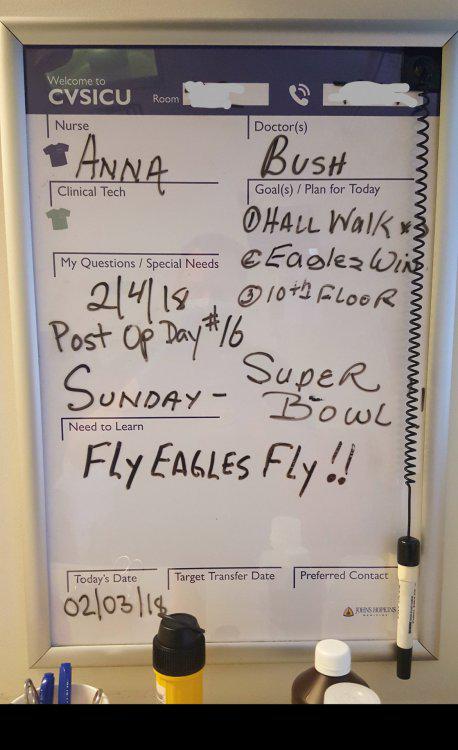 Welcome to
CVSICU
Room
Nurse
Doctor(s)
ANNA
BUSH
Clinical Tech
Goal(s) / Plan for Today
① HALL Walk x
② Eagles Win
③ 10th FLOOR
My Questions / Special Needs
2/4/18
Post Op Day #16
SUNDAY - SUPER BOWL
Need to Learn
FLY EAGLES FLY!!
Today's Date
Target Transfer Date
Preferred Contact
02/03/18
JOHNS HOPKINS
MEDICINE